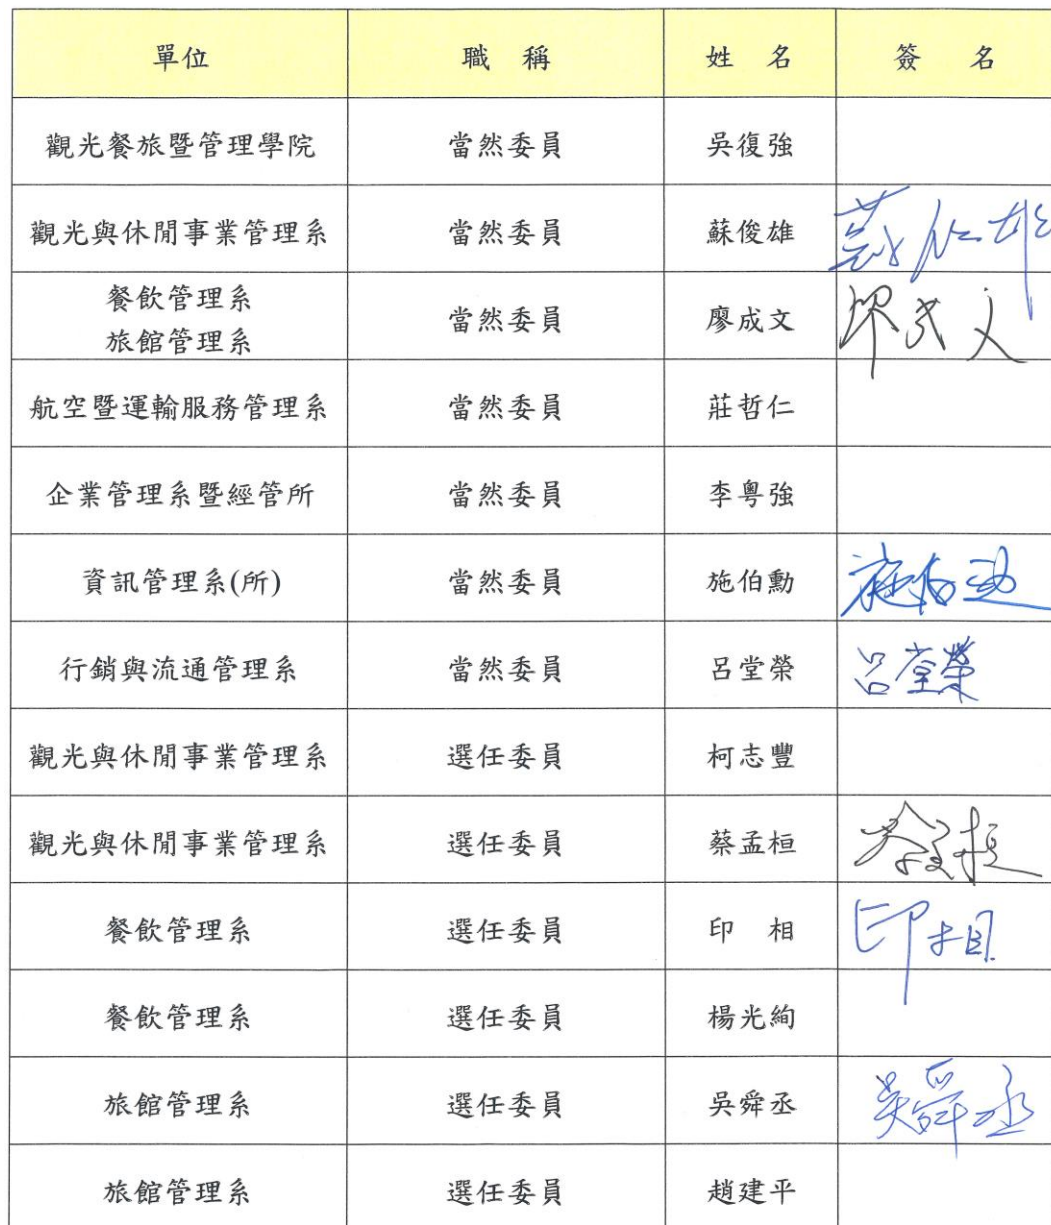 單位 職 稱 姓 名 簽 名
觀光餐旅暨管理學院 當然委員 吳復強
觀光與休閒事業管理系 當然委員 蘇俊雄 蘇俊雄
餐飲管理系
旅館管理系 當然委員 廖成文 廖成文
航空暨運輸服務管理系 當然委員 莊哲仁
企業管理系暨經管所 當然委員 李粵強
資訊管理系(所) 當然委員 施伯勳 施伯勳
行銷與流通管理系 當然委員 呂堂榮 呂堂榮
觀光與休閒事業管理系 選任委員 柯志豐
觀光與休閒事業管理系 選任委員 蔡孟桓 蔡孟桓
餐飲管理系 選任委員 印 相 印相
餐飲管理系 選任委員 楊光絢
旅館管理系 選任委員 吳舜丞 吳舜丞
旅館管理系 選任委員 趙建平